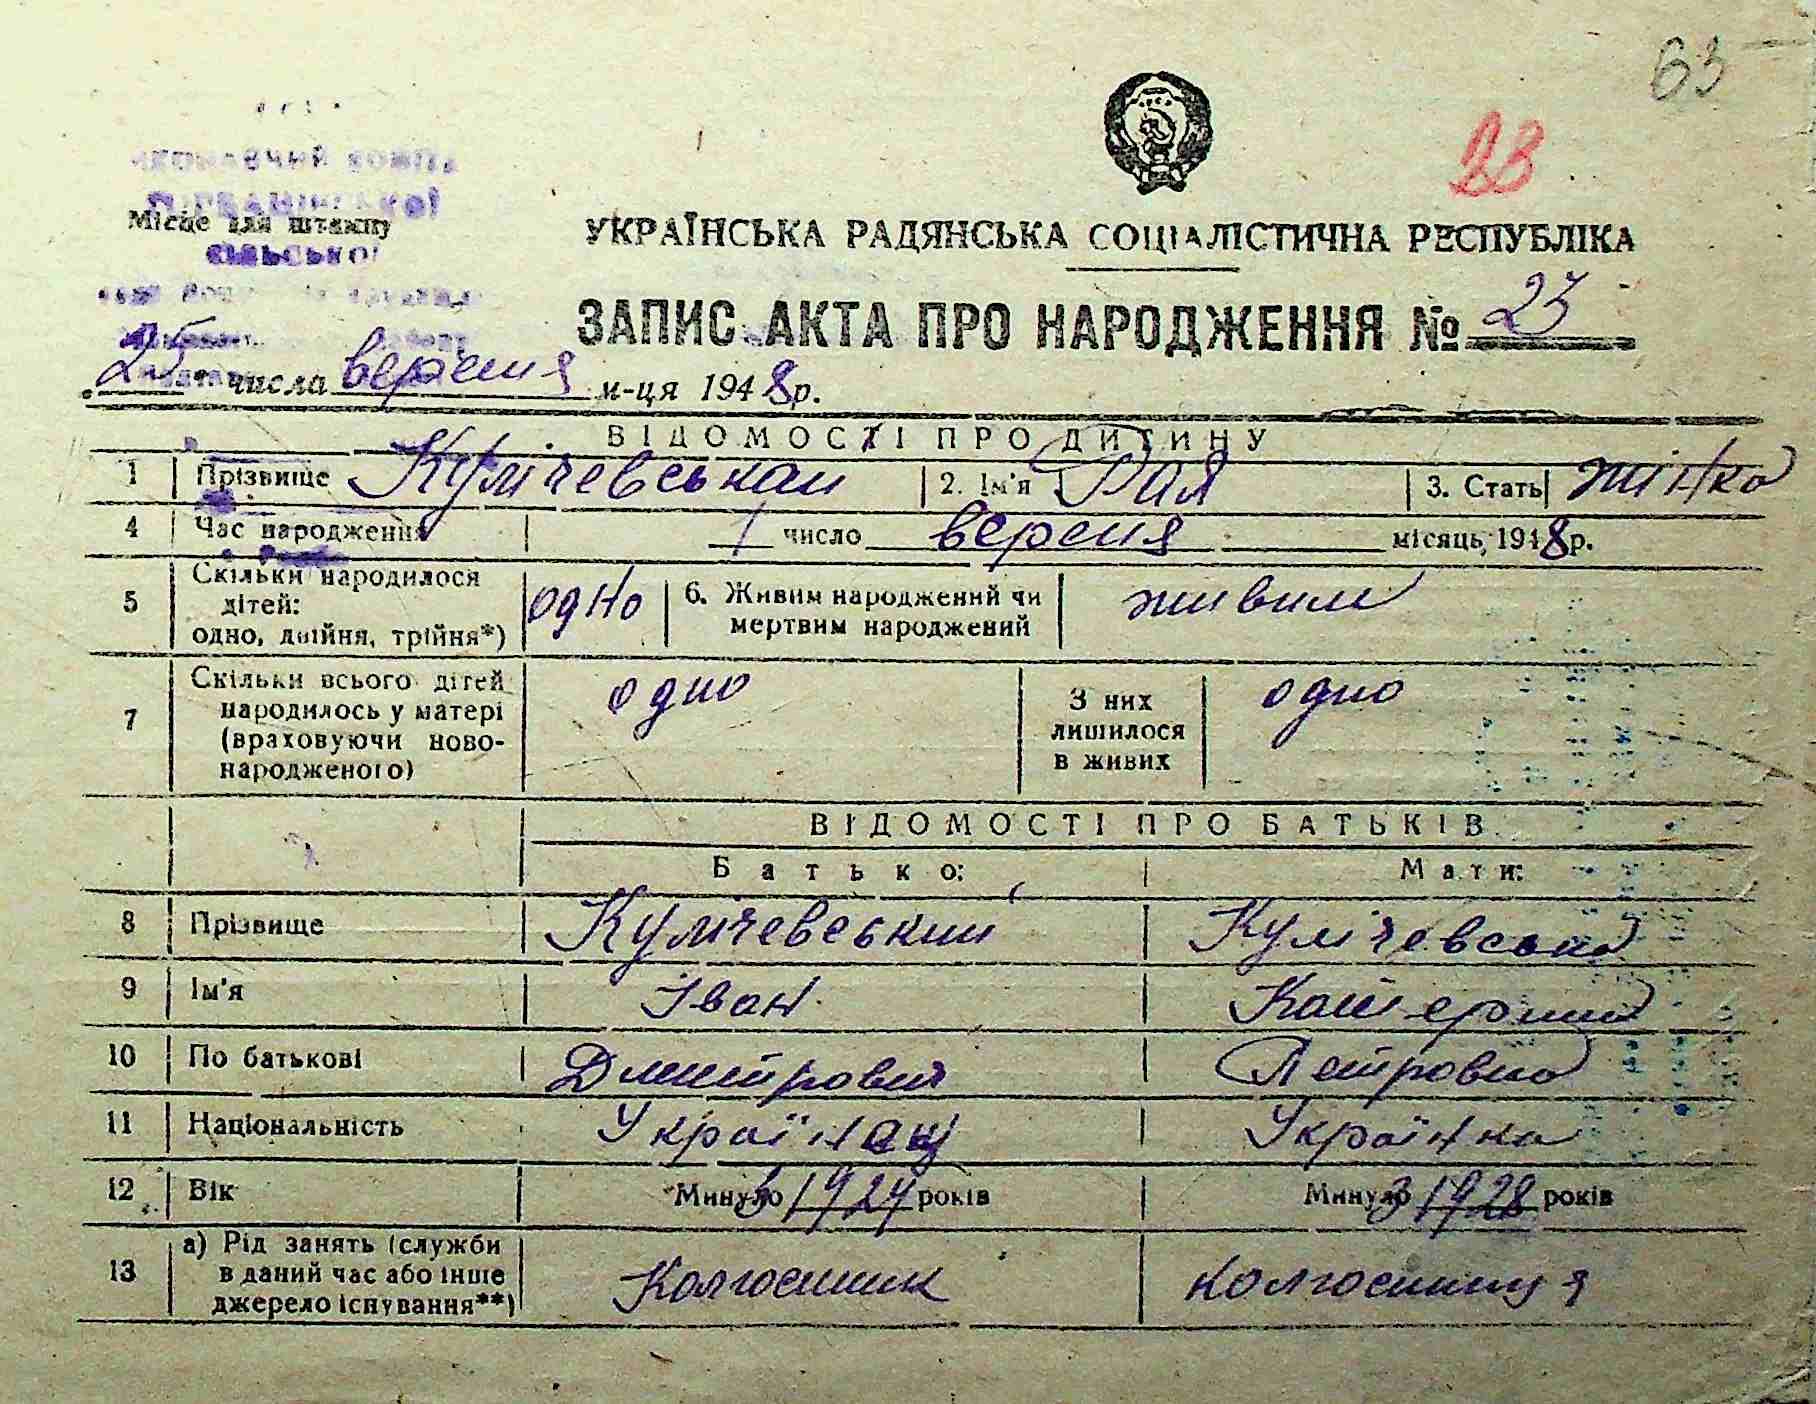 63
23
Місце для штампу
СІЛЬСЬКОЇ
УКРАЇНСЬКА РАДЯНСЬКА СОЦІАЛІСТИЧНА РЕСПУБЛІКА
ЗАПИС АКТА ПРО НАРОДЖЕННЯ № 23
"25" числа вересня м-ця 1948 р.
ВІДОМОСТІ ПРО ДИТИНУ
1 Прізвище Кулічевськая 2. Ім'я Рая 3. Стать жінка
4 Час народження 1 число вересня місяць 1948 р.
5 Скільки народилося дітей: одно, двійня, трійня*) одно 6. Живим народжений чи мертвим народжений живим
7 Скільки всього дітей народилось у матері (враховуючи новонародженого) одно З них лишилося в живих одно
ВІДОМОСТІ ПРО БАТЬКІВ
Батько: Мати:
8 Прізвище Кулічевський Кулічевська
9 Ім'я Іван Катерина
10 По батькові Дмитрович Петровна
11 Національність Українец Українка
12 Вік Минуло З 1924 років Минуло З 1928 років
13 а) Рід занять (служби в даний час або інше джерело існування**) Колгоспник колгоспниця